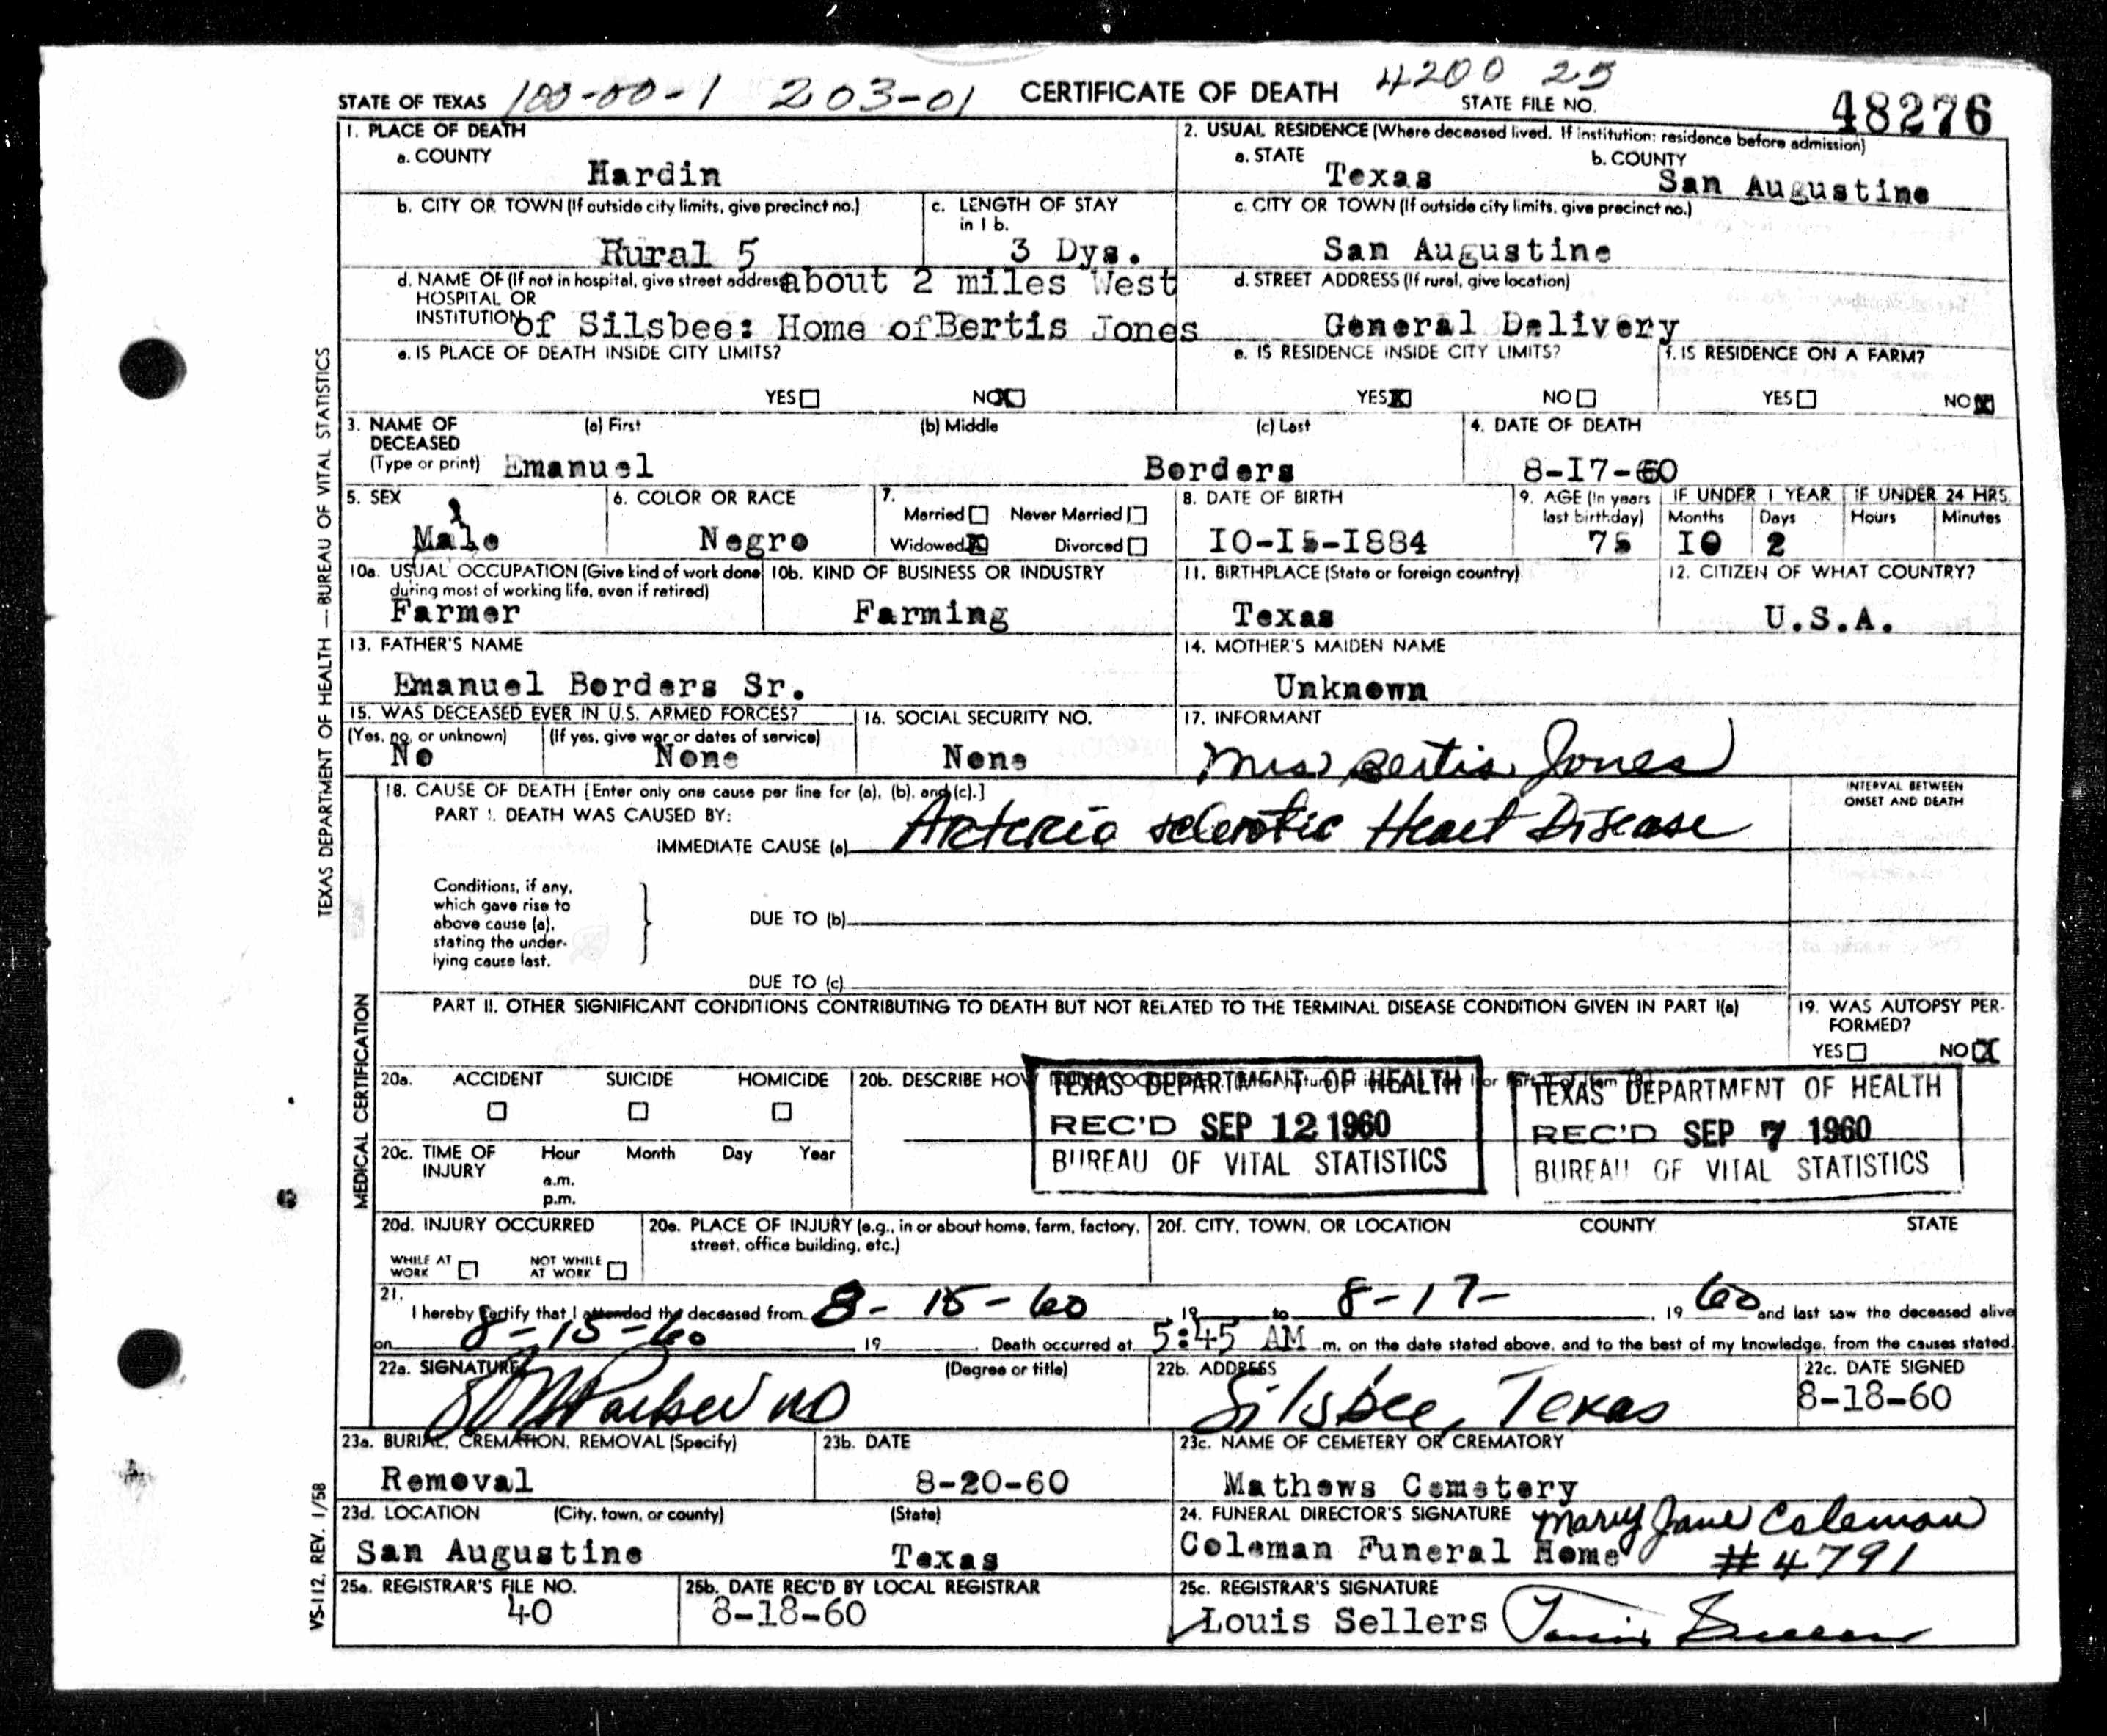 STATE OF TEXAS 100-00-1 203-01 CERTIFICATE OF DEATH 4200 25 STATE FILE NO. 48276
1. PLACE OF DEATH
a. COUNTY
Hardin
2. USUAL RESIDENCE (Where deceased lived. If institution: residence before admission)
a. STATE b. COUNTY
Texas San Augustine
b. CITY OR TOWN (If outside city limits, give precinct no.)
Rural 5
c. LENGTH OF STAY
in 1 b.
3 Dys.
c. CITY OR TOWN (If outside city limits, give precinct no.)
San Augustine
d. NAME OF (If not in hospital, give street address) about 2 miles West
HOSPITAL OR
INSTITUTION of Silsbee: Home ofBertis Jones
d. STREET ADDRESS (If rural, give location)
General Delivery
e. IS PLACE OF DEATH INSIDE CITY LIMITS?
YES NO X
e. IS RESIDENCE INSIDE CITY LIMITS?
YES X NO
f. IS RESIDENCE ON A FARM?
YES NO X
3. NAME OF
DECEASED
(Type or print)
(a) First (b) Middle (c) Last
Emanuel Borders
4. DATE OF DEATH
8-I7-60
5. SEX
Male
6. COLOR OR RACE
Negro
7.
Married Never Married
Widowed X Divorced
8. DATE OF BIRTH
IO-I5-I884
9. AGE (In years
last birthday)
75
IF UNDER 1 YEAR IF UNDER 24 HRS.
Months Days Hours Minutes
IO 2
10a. USUAL OCCUPATION (Give kind of work done
during most of working life, even if retired)
Farmer
10b. KIND OF BUSINESS OR INDUSTRY
Farming
11. BIRTHPLACE (State or foreign country)
Texas
12. CITIZEN OF WHAT COUNTRY?
U.S.A.
13. FATHER'S NAME
Emanuel Borders Sr.
14. MOTHER'S MAIDEN NAME
Unknown
15. WAS DECEASED EVER IN U.S. ARMED FORCES?
(Yes, no, or unknown) (If yes, give war or dates of service)
No None
16. SOCIAL SECURITY NO.
None
17. INFORMANT
Mrs Bertis Jones
18. CAUSE OF DEATH [Enter only one cause per line for (a), (b), and (c).]
PART I. DEATH WAS CAUSED BY:
IMMEDIATE CAUSE (a) Arterio sclerotic Heart Disease
INTERVAL BETWEEN
ONSET AND DEATH
Conditions, if any,
which gave rise to
above cause (a),
stating the under-
lying cause last.
DUE TO (b)
DUE TO (c)
PART II. OTHER SIGNIFICANT CONDITIONS CONTRIBUTING TO DEATH BUT NOT RELATED TO THE TERMINAL DISEASE CONDITION GIVEN IN PART I(a)
19. WAS AUTOPSY PER-
FORMED?
YES NO X
20a. ACCIDENT SUICIDE HOMICIDE
20b. DESCRIBE HOW
TEXAS DEPARTMENT OF HEALTH
REC'D SEP 12 1960
BUREAU OF VITAL STATISTICS
TEXAS DEPARTMENT OF HEALTH
REC'D SEP 7 1960
BUREAU OF VITAL STATISTICS
20c. TIME OF
INJURY
Hour Month Day Year
a.m.
p.m.
20d. INJURY OCCURRED
WHILE AT
WORK
NOT WHILE
AT WORK
20e. PLACE OF INJURY (e.g., in or about home, farm, factory,
street, office building, etc.)
20f. CITY, TOWN, OR LOCATION COUNTY STATE
21.
I hereby certify that I attended the deceased from 8-15-60 19 to 8-17- , 19 60 and last saw the deceased alive
on 8-15-60 19 . Death occurred at 5:45 AM m. on the date stated above, and to the best of my knowledge, from the causes stated.
22a. SIGNATURE (Degree or title)
Parker MD
22b. ADDRESS
Silsbee, Texas
22c. DATE SIGNED
8-18-60
23a. BURIAL, CREMATION, REMOVAL (Specify)
Removal
23b. DATE
8-20-60
23c. NAME OF CEMETERY OR CREMATORY
Mathews Cemetery
23d. LOCATION (City, town, or county) (State)
San Augustine Texas
24. FUNERAL DIRECTOR'S SIGNATURE Mary Jane Coleman
Coleman Funeral Home #4791
25a. REGISTRAR'S FILE NO.
40
25b. DATE REC'D BY LOCAL REGISTRAR
8-18-60
25c. REGISTRAR'S SIGNATURE
Louis Sellers
TEXAS DEPARTMENT OF HEALTH — BUREAU OF VITAL STATISTICS
MEDICAL CERTIFICATION
VS-112, REV. 1/58